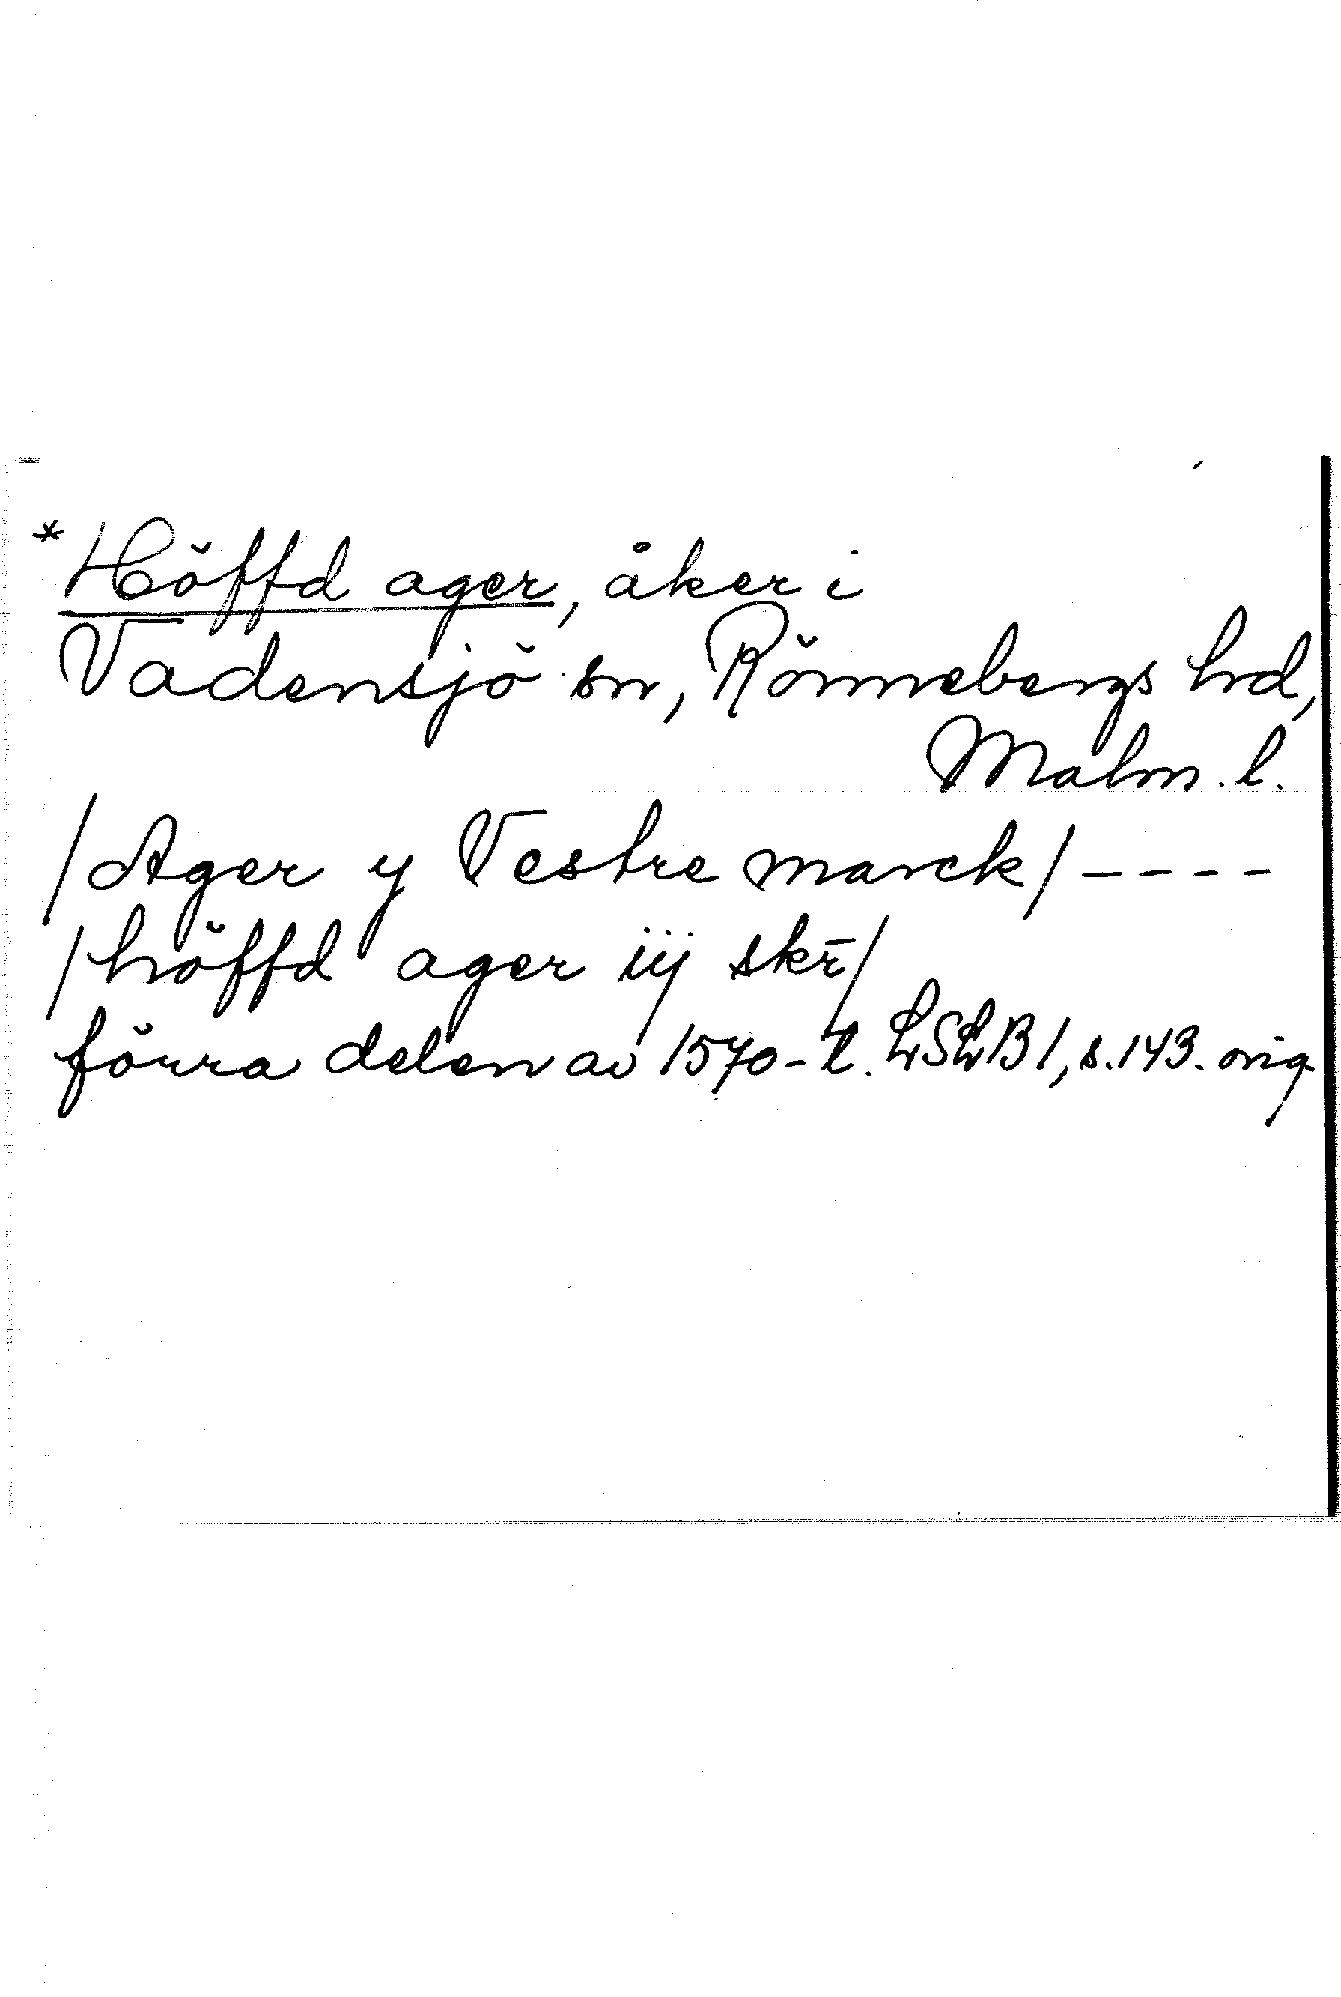 *Höffd ager, åker i
Vadensjö sn, Rönnebergs hd,
Malm. l.
/Ager y Vestre marck/ ----
/höffd ager iij skr̄/
förra delen av 1570-t. LSLB 1, s. 143. orig.